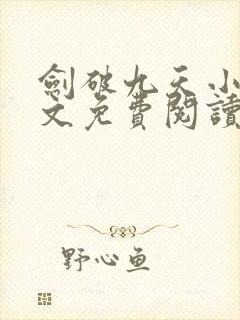 劍破九天小
文免費閱讀
野心鱼